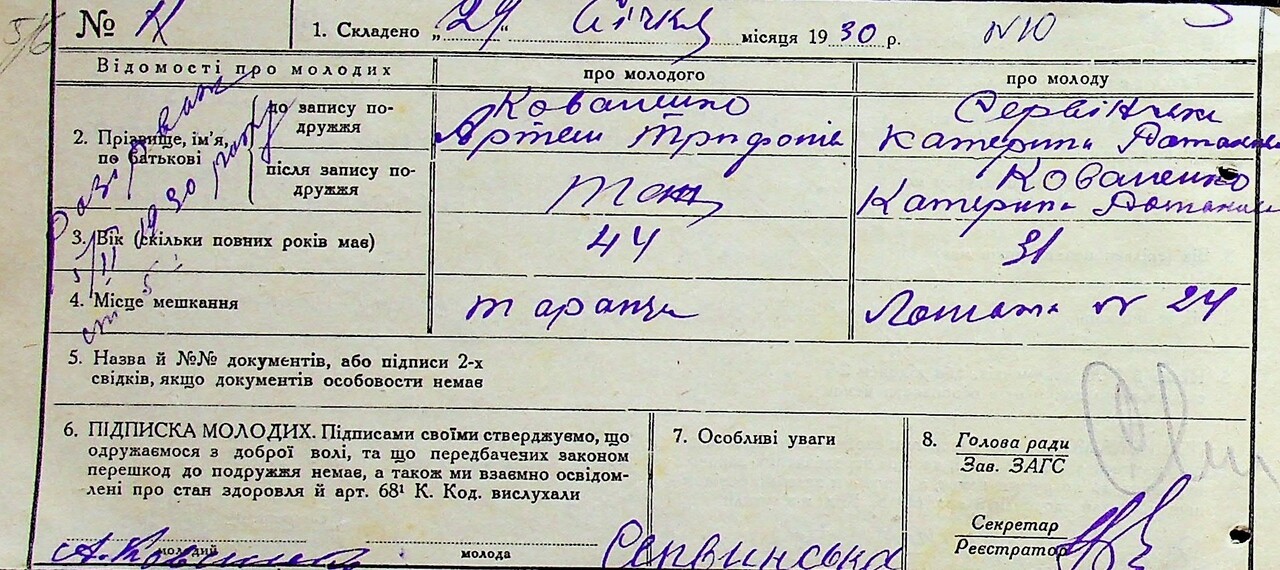 № 1. Складено „29“ Січня місяця 1930 р. N10
Відомості про молодих про молодого про молоду
2. Прізвище, ім'я, по батькові
до запису подружжя
Коваленко
Артем Трифонів
Сервінська
Катерина
після запису подружжя
Тож
Коваленко
Катерина
1930
3. Вік (скільки повних років має) 44 31
4. Місце мешкання № 24
5. Назва й №№ документів, або підписи 2-х
свідків, якщо документів особовости немає
6. ПІДПИСКА МОЛОДИХ. Підписами своїми стверджуємо, що
одружаємося з доброї волі, та що передбачених законом
перешкод до подружжя немає, а також ми взаємно освідом-
лені про стан здоровля й арт. 68¹ К. Код. вислухали
7. Особливі уваги
8. Голова ради
Зав. ЗАГС
Секретар
Реєстратор
молодий
молода
Сервинська